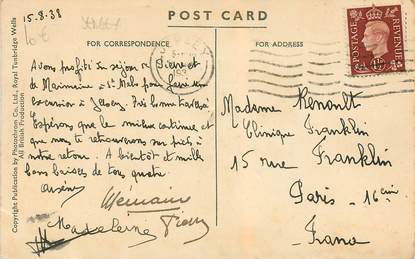 15.8.38
16 €
POST CARD
FOR CORRESPONDENCE
FOR ADDRESS
POSTAGE
REVENUE
JERSEY
Avons profité du séjour de Pierre et
de Mémaine à St Malo pour faire une
excursion à Jersey. Très bonne traversée
Espérons que le mieux continue et
que nous te retrouverons sur pieds à
notre retour. A bientôt et mille
bons baisers de tous quatre.
Mémaine
Madeleine
Pierre
Madame Renoult
Clinique Franklin
15 rue Franklin
Paris - 16ème
France
Copyright Publication by Photochrom Co., Ltd., Royal Tunbridge Wells
All British Production